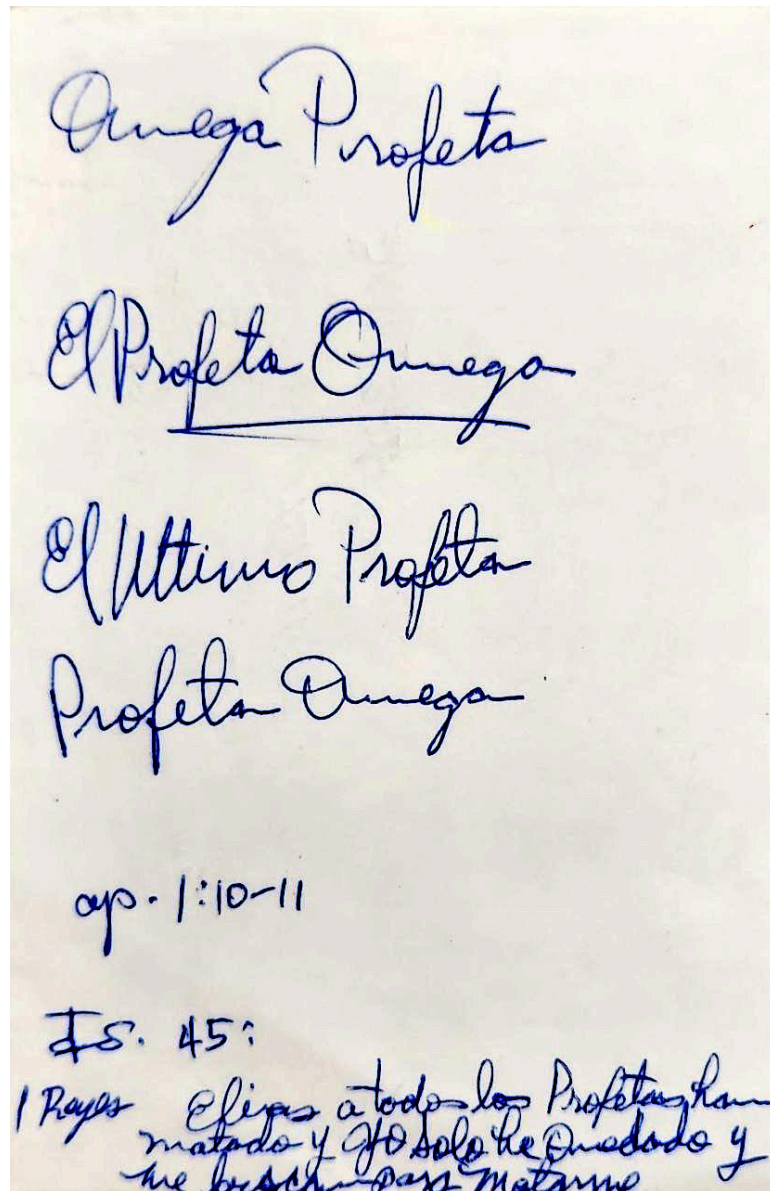 Omega Profeta
El Profeta Omega
El Ultimo Profeta
Profeta Omega
ap. 1:10-11
Is. 45:
1 Reyes Elias a todos los Profetas han
matado y yo solo he quedado y
me buscan para matarme